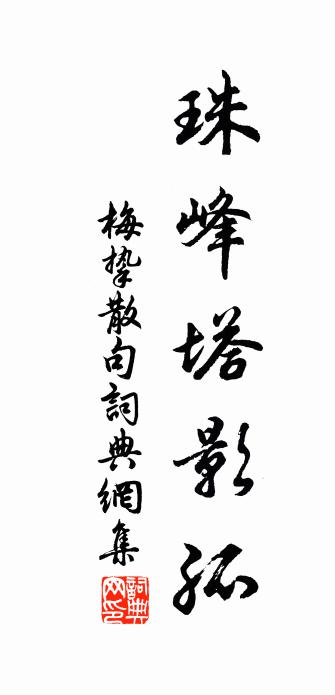 珠峰塔影孤
梅挚散句詞典網集
詞典网印